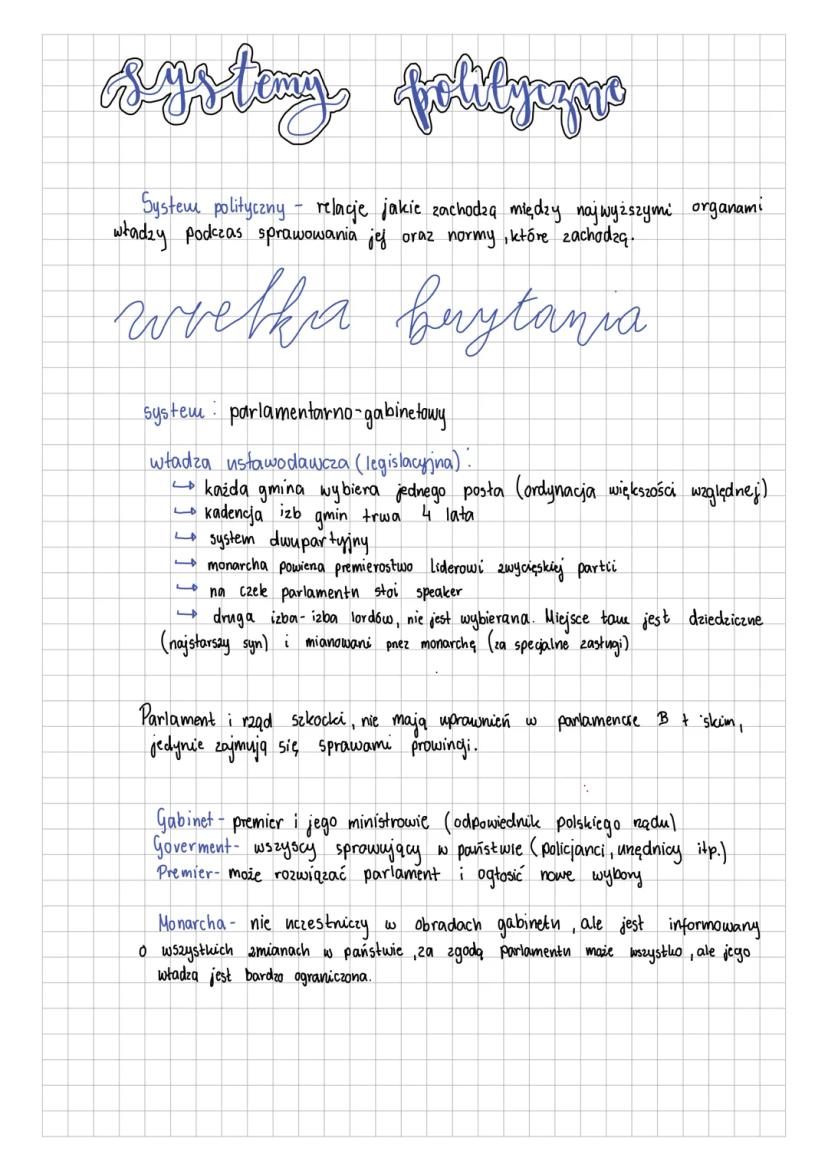 systemy polityczne
System polityczny - relacje jakie zachodzą między najwyższymi organami
władzy podczas sprawowania jej oraz normy, które zachodzą.
wielka brytania
system: parlamentarno-gabinetowy
władza ustawodawcza (legislacyjna):
↳ każda gmina wybiera jednego posła (ordynacja większości względnej)
↳ kadencja izb gmin trwa 4 lata
↳ system dwupartyjny
↳ monarcha powiena premierostwo liderowi zwycięskiej partii
↳ na czele parlamentu stoi speaker
↳ druga izba - izba lordów, nie jest wybierana. Miejsce tam jest dziedziczne
(najstarszy syn) i mianowani przez monarchę (za specjalne zasługi)
Parlament i rząd szkocki, nie mają uprawnień w parlamencie
jedynie zajmują się sprawami prowincji.
Gabinet - premier i jego ministrowie (odpowiednik polskiego rządu)
Goverment - wszyscy sprawujący w państwie (policjanci, urzędnicy itp.)
Premier - może rozwiązać parlament i ogłosić nowe wybory
Monarcha - nie uczestniczy w obradach gabinetu, ale jest informowany
o wszystkich zmianach w państwie, za zgodą parlamentu może wszystko, ale jego
władzą jest bardzo ograniczona.